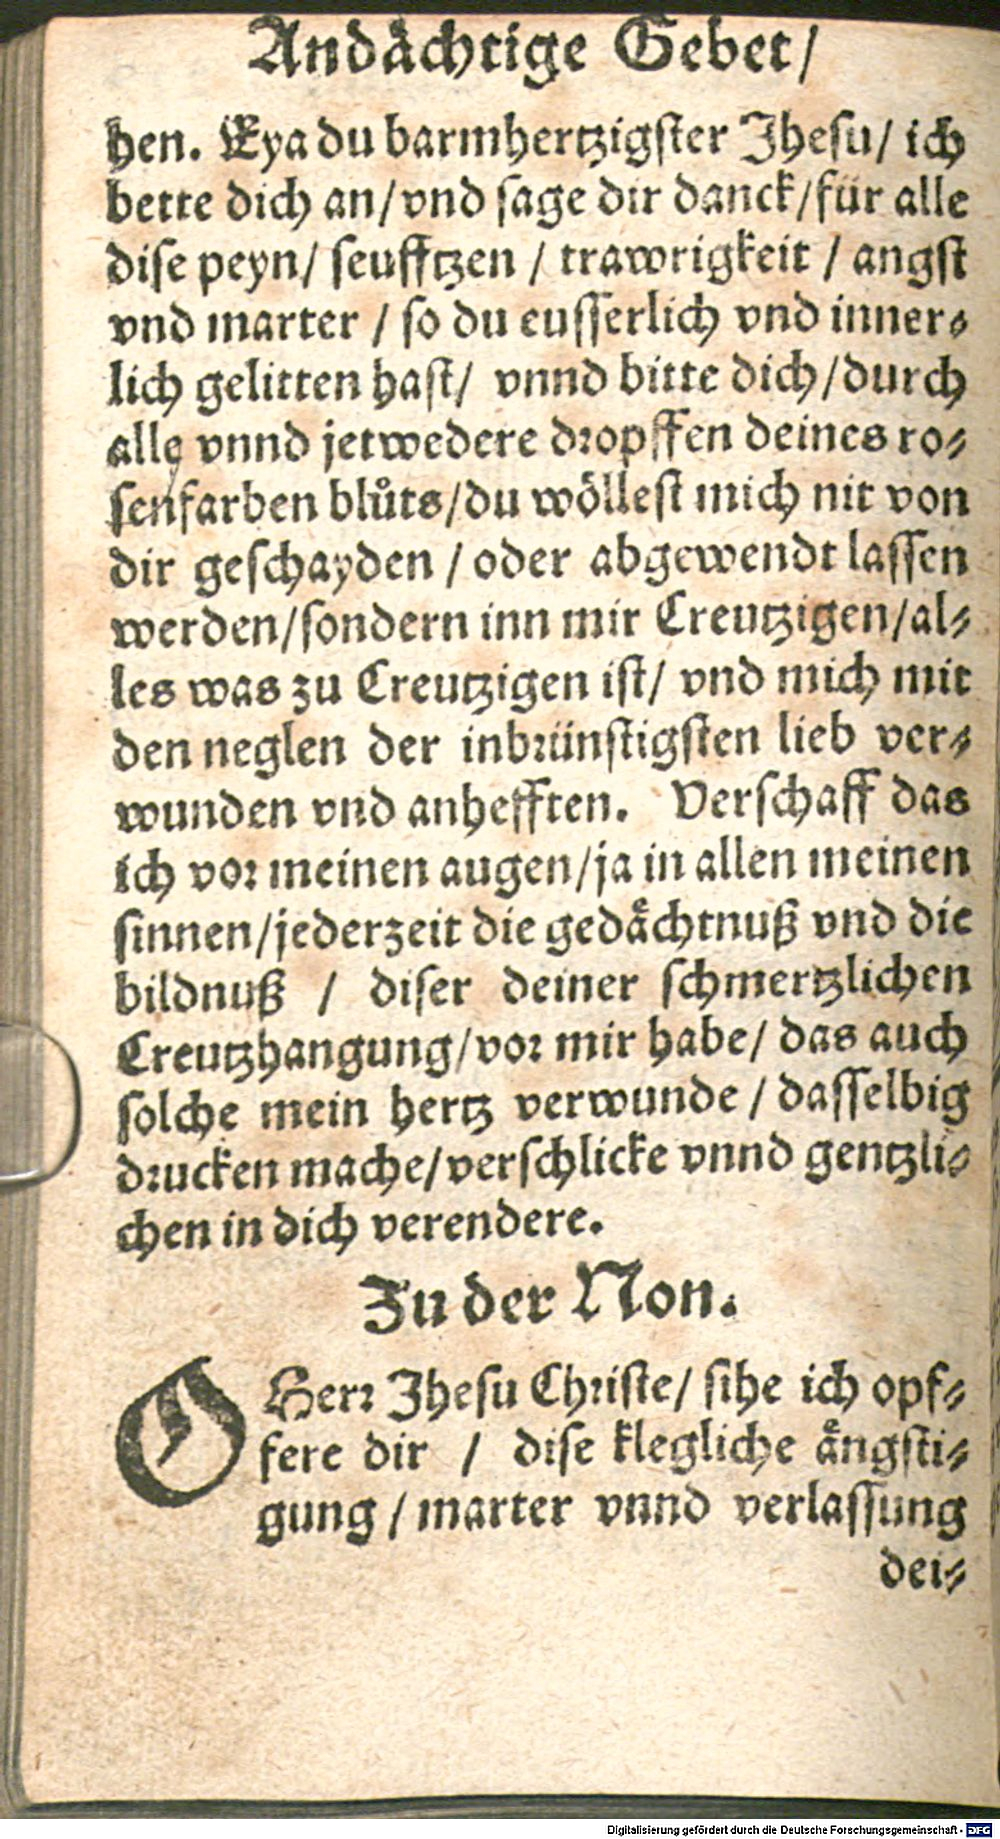 Andaͤchtige Gebet/
hen. Eya du barmhertzigſter Jheſu/ ich
bette dich an/vnd ſage dir danck/für alle
diſe peyn/ ſeufftzen / trawrigkeit / angſt
vnd marter / ſo du euſſerlich vnd inner⸗
lich gelitten haſt/ vnnd bitte dich/durch
alle vnnd jetwedere dꝛopffen deines ro⸗
ſenfarben bluͦts/du woͤlleſt mich nit von
dir geſchayden / oder abgewendt laſſen
werden/ſondern inn mir Creutzigen/al⸗
les was zu Creutzigen iſt/ vnd mich mit
den neglen der inbꝛünſtigſten lieb ver⸗
wunden vnd anhefften. Verſchaff das
ich voꝛ meinen augen/ja in allen meinen
ſinnen/jederzeit die gedaͤchtnuß vnd die
bildnuß / diſer deiner ſchmertzlichen
Creutzhangung/voꝛ mir habe/ das auch
ſolche mein hertz verwunde / daſſelbig
dꝛucken mache/verſchlicke vnnd gentzli⸗
chen in dich verendere.
Zu der Non.
O Herꝛ Jheſu Chꝛiſte/ ſihe ich opf⸗
fere dir / diſe klegliche aͤngſti⸗
gung / marter vnnd verlaſſung
dei⸗
Digitalisierung gefördert durch die Deutsche Forschungsgemeinschaft - DFG